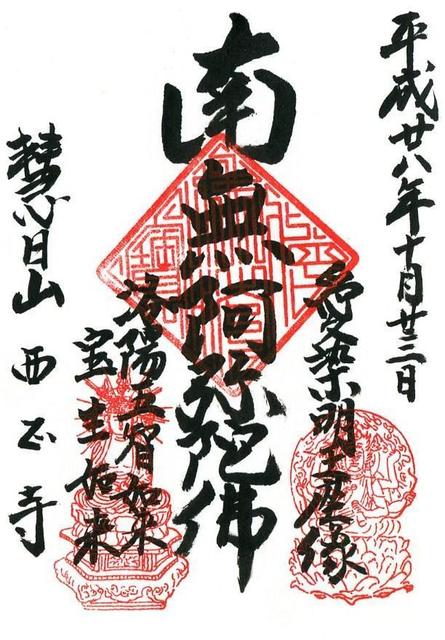 平成廿八年十月廿三日
愛染明王尊像
南無阿弥陀佛
洛陽五智如来
宝生如来
慧日山 西正寺